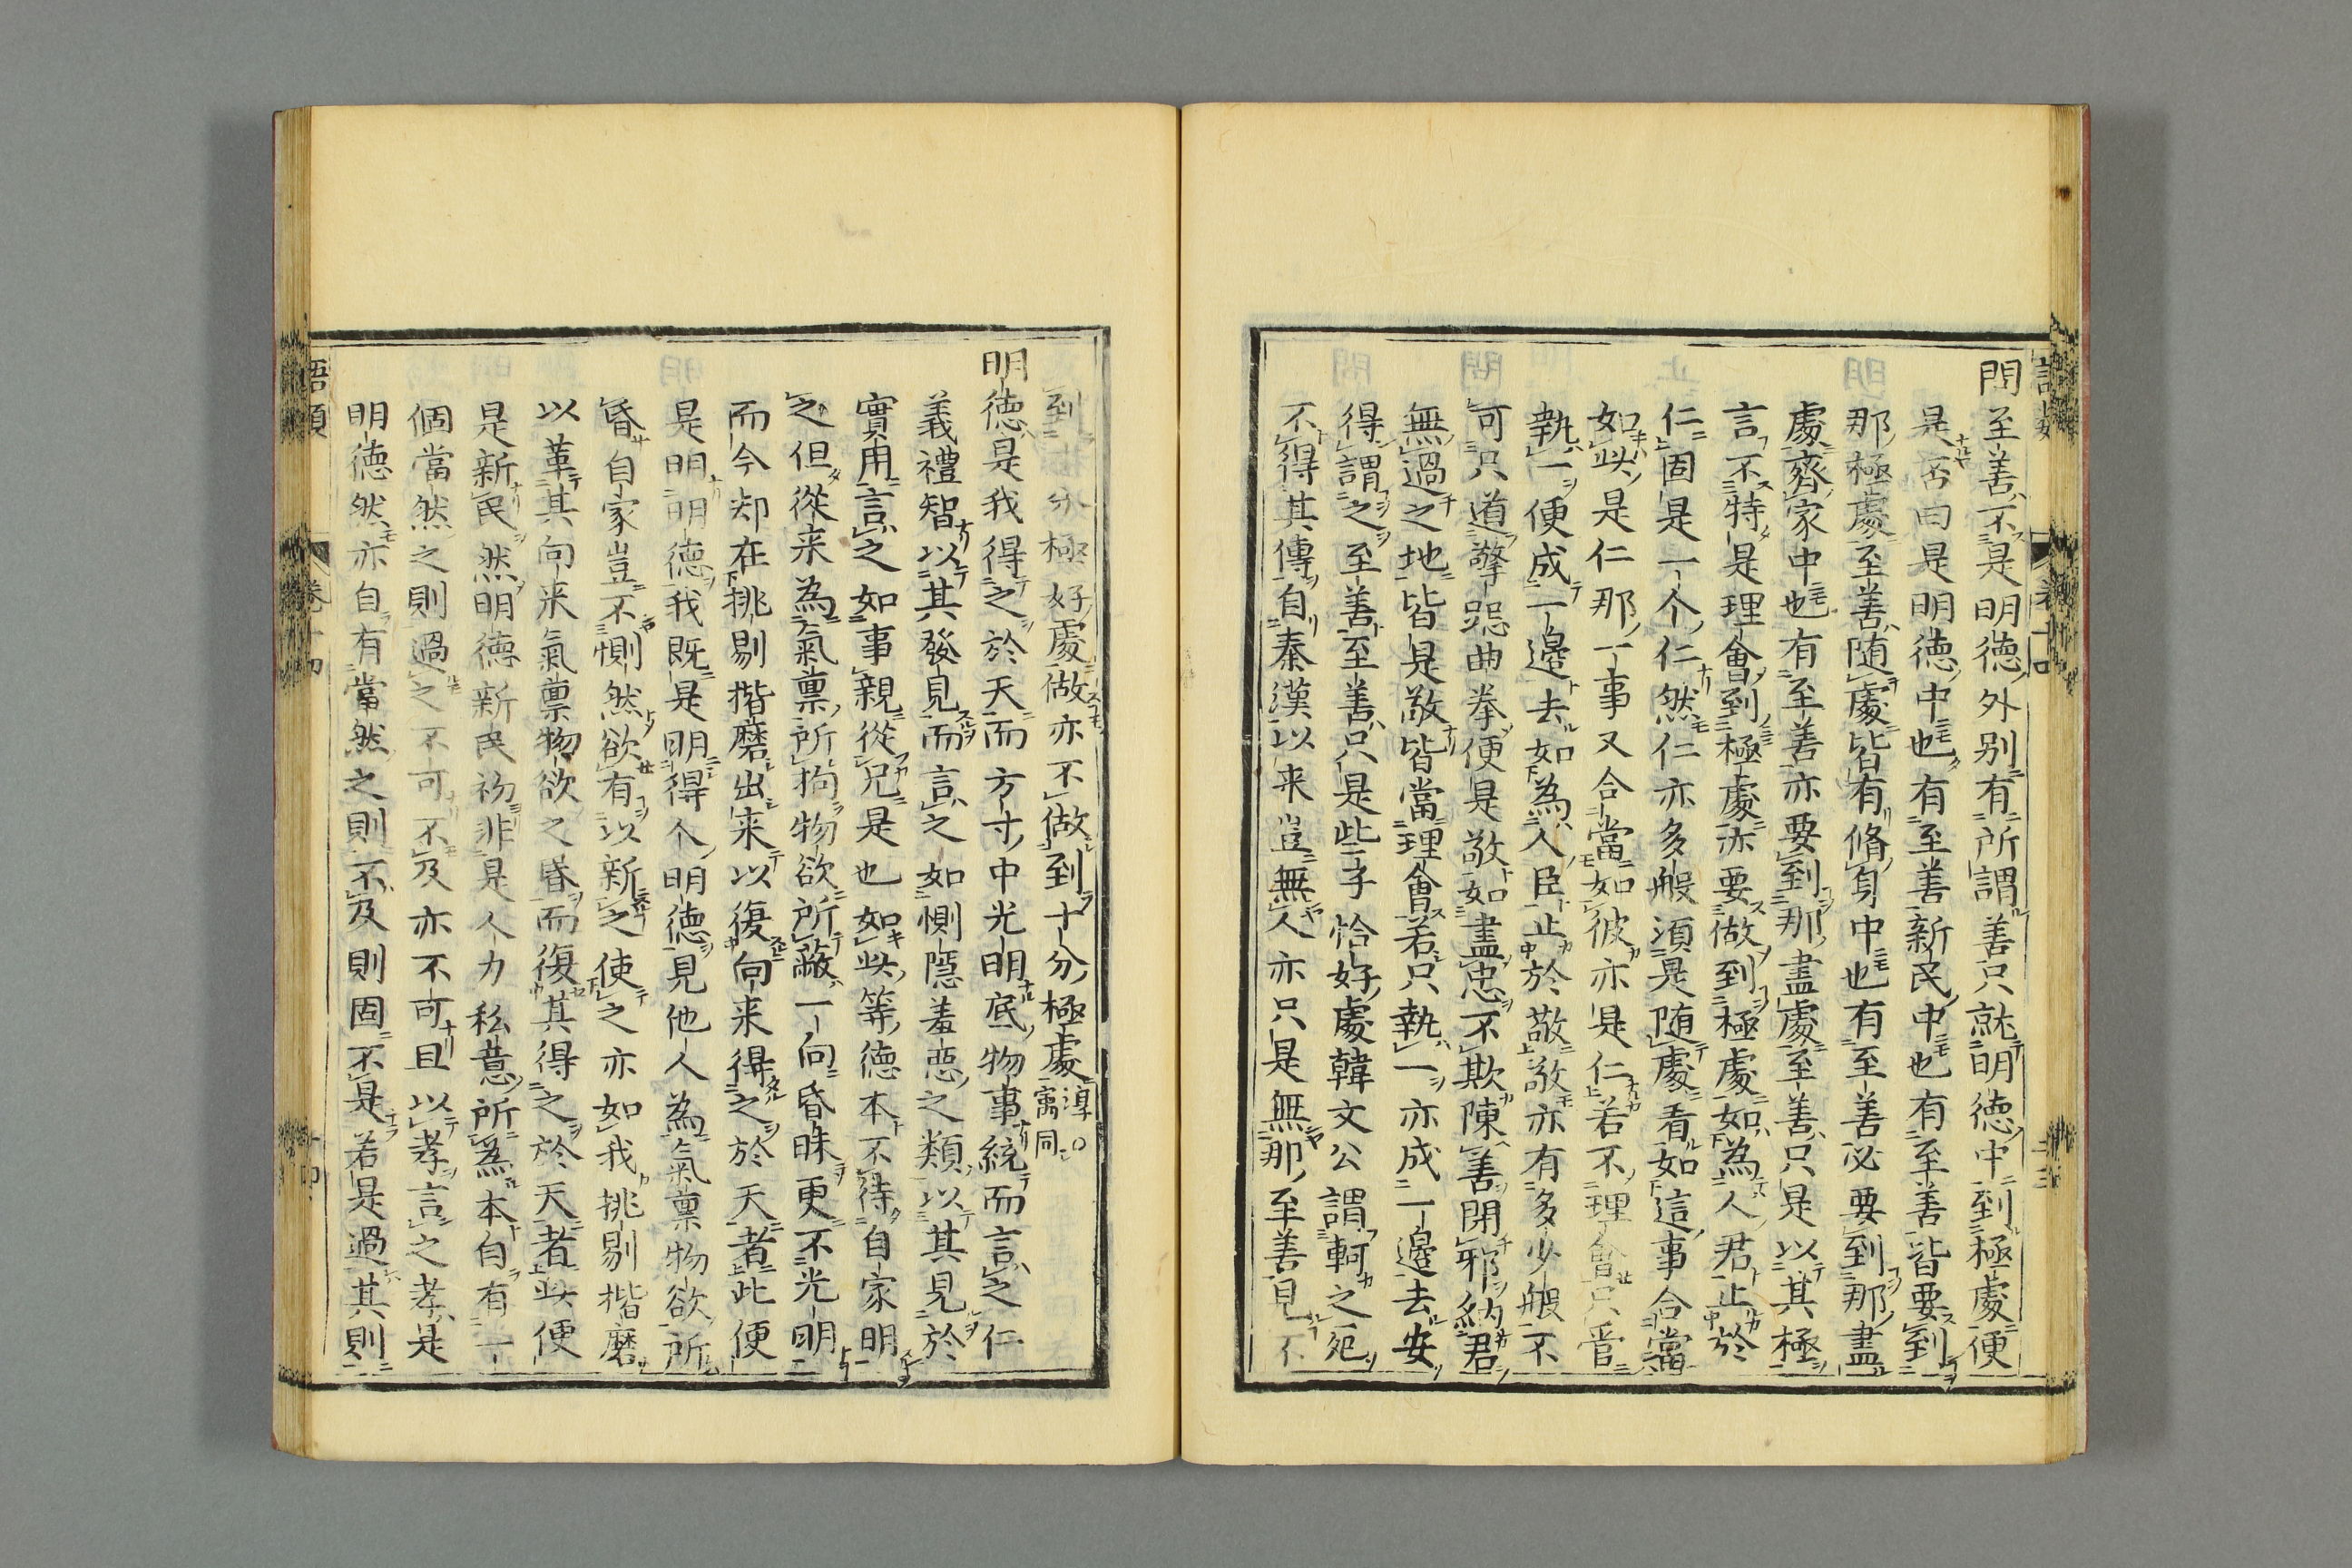 問至善不是明德外別有所謂善只就明德中到極處便
是否曰是明德中也有至善新民中也有至善皆要到
那極處至善隨處皆有脩身中也有至善必要到那盡
處齊家中也有至善亦要到那盡處至善只是以其極
言不特是理會到極處亦要做到極處如為人君止於
仁固是一个仁然仁亦多般須是随處看如這事合當
如此是仁那一事又合當如彼亦是仁若不理會只管
執一便成一邊去如為人臣止於敬敬亦有多少般不
可只道擎跽曲拳便是敬如盡忠不欺陳善閉邪納君
無過之地皆是敬皆當理會若只執一亦成一邊去安
得謂之至善至善只是些子恰好處韓文公謂軻之死
不得其傳自秦漢以来豈無人亦只是無那至善見不
到十分極好處做亦不做到十分極處淳○寓同
明德是我得之於天而方寸中光明底物事統而言之仁
義禮智以其發見而言之如惻隱羞惡之類以其見於
實用言之如事親從兄是也如此等德本不待自家明
之但從来為氣禀所拘物欲所蔽一向昏昧更不光明
而今却在挑剔揩磨出来以復向来得之於天者此便
是明明德我既是明得个明德見他人為氣禀物欲所
昏自家豈不惻然欲有以新之使之亦如我挑剔揩磨
以革其向来氣禀物欲之昏而復其得之於天者此便
是新民然明德新民初非是人力私意所為本自有一
個當然之則過之不可不及亦不可且以孝言之孝是
明德然亦自有當然之則不及則固不是若是過其則
語類 卷十四